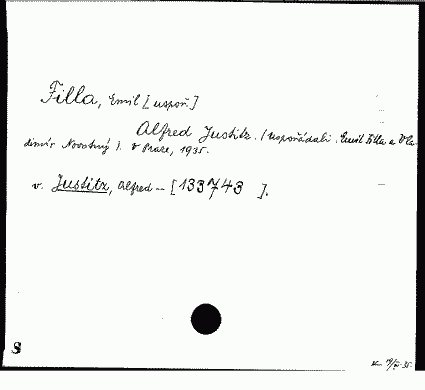 Filla, Emil [uspoř.]
Alfred Justitz. (Uspořádali: Emil Filla a Vla-
dimír Novotný). V Praze, 1935.
v. Justitz, Alfred – [133743 ].
S